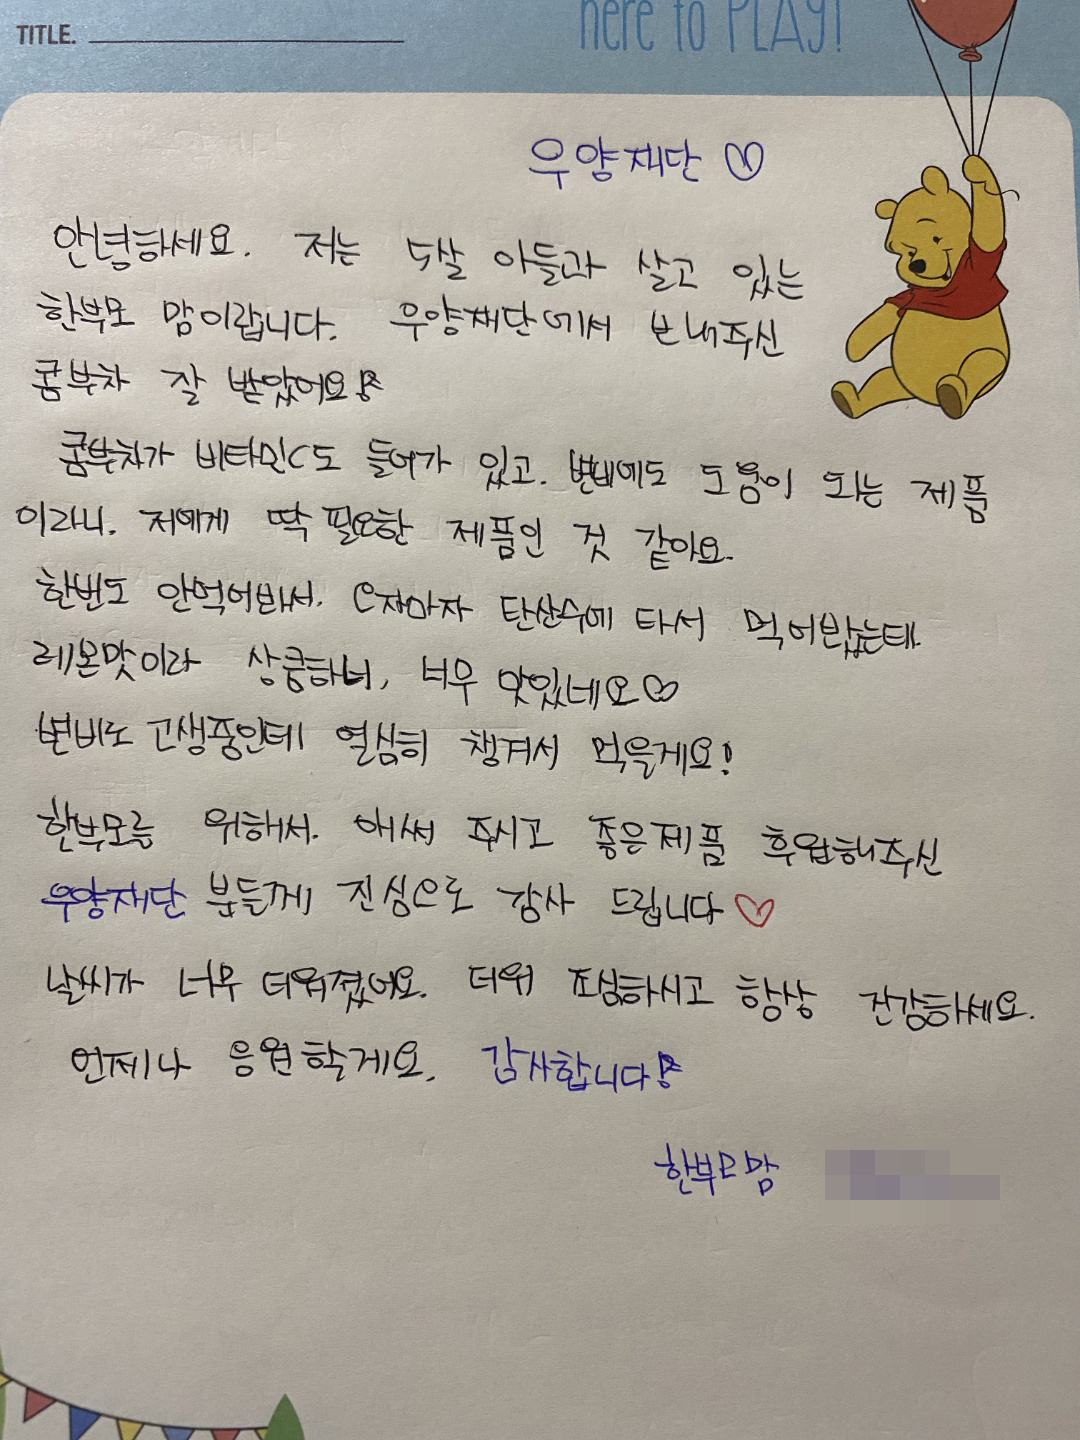 here to PLAY!
TITLE.
우양재단 ♡
안녕하세요. 저는 5살 아들과 살고 있는
한부모 맘이랍니다. 우양재단에서 보내주신
콤부차 잘 받았어요!
콤부차가 비타민C도 들어가 있고. 변비에도 도움이 되는 제품
이라니. 저에게 딱 필요한 제품인 것 같아요.
한번도 안먹어봐서. 오자마자 탄산수에 타서 먹어밨는데.
레몬맛이라 상큼하녀, 너무 맛있네요♡
변비로 고생중인데 열심히 챙겨서 먹을게요!
한부모를 위해서. 애써 주시고 좋은제품 후원해주신
우양재단 분들께 진심으로 감사 드립니다♡
날씨가 너무 더워졌어요. 더위 조심하시고 항상 건강하세요.
언제나 응원할게요. 감사합니다!
한부모맘